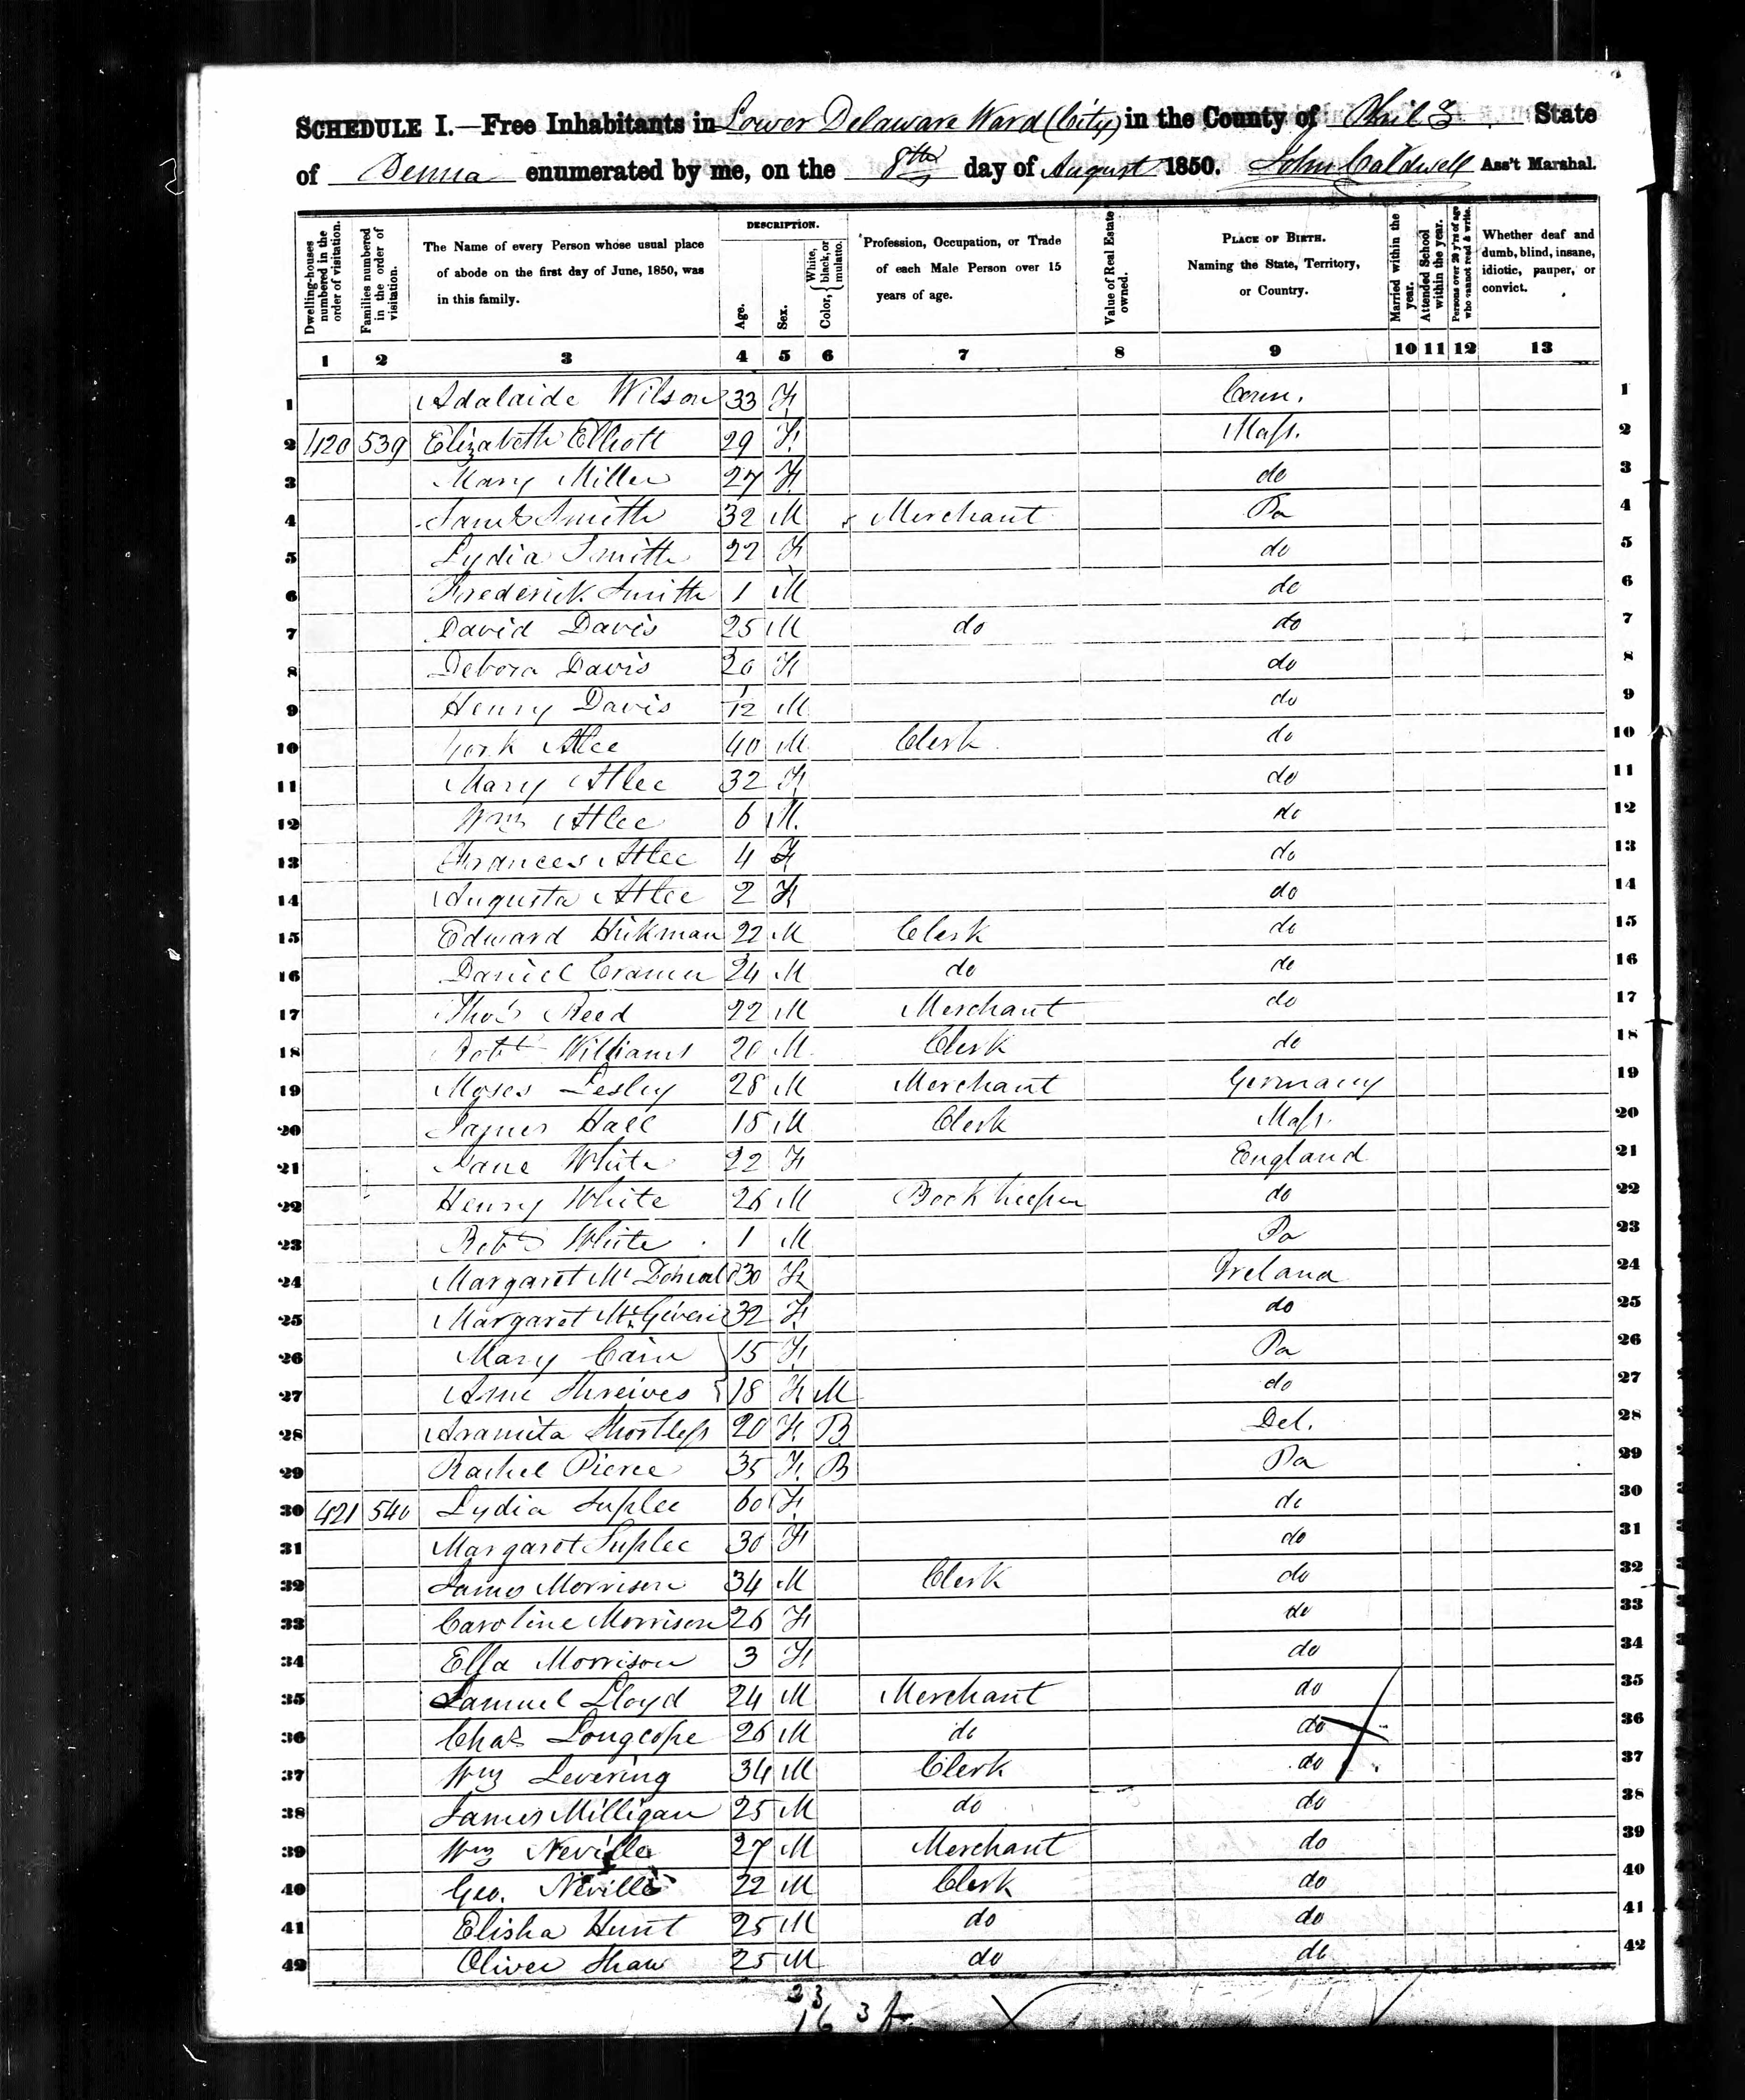 SCHEDULE I.—Free Inhabitants in Lower Delaware Ward (City) in the County of Phil State
of Penna enumerated by me, on the 8th day of August 1850. John Caldwell Ass't Marshal.
Dwelling-houses numbered in the order of visitation.
Families numbered in the order of visitation.
The Name of every Person whose usual place of abode on the first day of June, 1850, was in this family.
DESCRIPTION.
Age.
Sex.
Color, { White, black, or mulatto.
Profession, Occupation, or Trade of each Male Person over 15 years of age.
Value of Real Estate owned.
PLACE OF BIRTH. Naming the State, Territory, or Country.
Married within the year.
Attended School within the year.
Persons over 20 y'rs of age who cannot read & write.
Whether deaf and dumb, blind, insane, idiotic, pauper, or convict.
1 2 3 4 5 6 7 8 9 10 11 12 13
1 Adalaide Wilson 33 F Conn. 1
2 420 539 Elizabeth Elliott 29 F Mass. 2
3 Mary Miller 27 F do 3
4 Saml Smith 32 M Merchant Pa 4
5 Lydia Smith 22 F do 5
6 Frederick Smith 1 M do 6
7 David Davis 25 M do do 7
8 Debora Davis 20 F do 8
9 Henry Davis 1/12 M do 9
10 York Atlee 40 M Clerk do 10
11 Mary Atlee 32 F do 11
12 Wm Atlee 6 M do 12
13 Frances Atlee 4 F do 13
14 Augusta Atlee 2 F do 14
15 Edward Hickman 22 M Clerk do 15
16 Daniel Cramer 24 M do do 16
17 Thos Reed 22 M Merchant do 17
18 Robt Williams 20 M Clerk do 18
19 Moses Lesley 28 M Merchant Germany 19
20 James Hall 18 M Clerk Mass. 20
21 Jane White 22 F England 21
22 Henry White 26 M Book Keeper do 22
23 Robt White 1 M Pa 23
24 Margaret Mc 30 F Ireland 24
25 Margaret Mc 32 F do 25
26 Mary Cain 15 F Pa 26
27 Ann Shreives 18 F M do 27
28 Aramita Shortless 20 F B Del. 28
29 Rachel Pierce 35 F B Pa 29
30 421 540 Lydia Suplee 60 F do 30
31 Margaret Suplee 30 F do 31
32 James Morrison 34 M Clerk do 32
33 Caroline Morrison 26 F do 33
34 Ella Morrison 3 F do 34
35 Samuel Lloyd 24 M Merchant do 35
36 Chas Longcope 26 M do do 36
37 Wm Levering 34 M Clerk do 37
38 James Milligan 25 M do do 38
39 Wm Neville 27 M Merchant do 39
40 Geo. Neville 22 M Clerk do 40
41 Elisha Hunt 25 M do do 41
42 Oliver Shaw 25 M do do 42
23
16 3